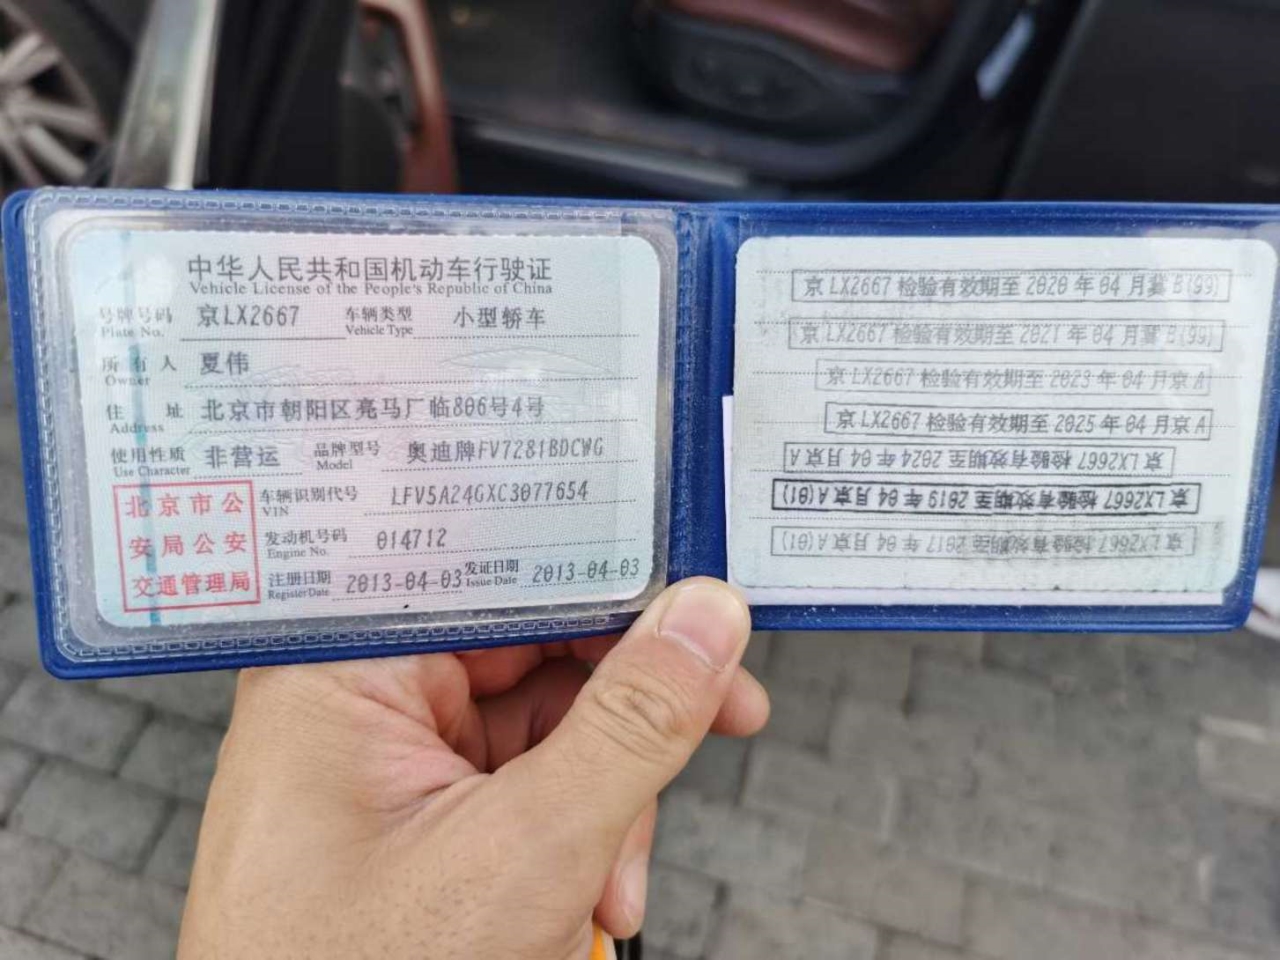 中华人民共和国机动车行驶证
Vehicle License of the People's Republic of China
号牌号码 京LX2667 车辆类型 小型轿车
Plate No. Vehicle Type
所有人 夏伟
Owner
住址 北京市朝阳区亮马厂临806号4号
Address
使用性质 非营运 品牌型号 奥迪牌FV7281BDCWG
Use Character Model
北京市公
安局公安
交通管理局
车辆识别代号 LFV5A24GXC3077654
VIN
发动机号码 014712
Engine No.
注册日期 2013-04-03 发证日期 2013-04-03
Register Date Issue Date
京LX2667 检验有效期至 2020 年 04 月冀 B(99)
京LX2667 检验有效期至 2021 年 04 月冀 B(99)
京LX2667 检验有效期至 2023 年 04 月京 A
京LX2667 检验有效期至 2025 年 04 月京 A
京LX2667 检验有效期至 2024 年 04 月京 A
京LX2667 检验有效期至 2019 年 04 月京 A(01)
京LX2667 检验有效期至 2017 年 04 月京 A(01)